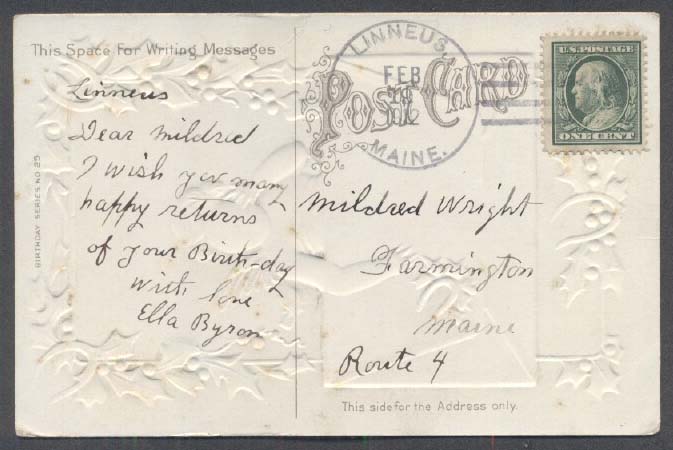 This Space For Writing Messages
Linneus
Dear Mildred
I wish you many
happy returns
of your Birth-day
With love
Ella Byron
BIRTHDAY SERIES NO 25
POST CARD
LINNEUS,
FEB
MAINE.
U.S. POSTAGE
ONE CENT
Mildred Wright
Farmington
Maine
Route 4
This side for the Address only.